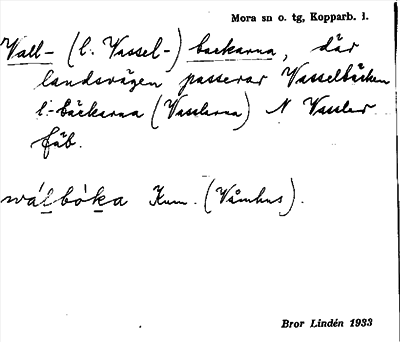 Mora sn o. tg, Kopparb. l.
Vall- (l. Vassel-) backarna, där
landsvägen passerar Vasselbäcken
l.-bäckarna (Vasslarna) N Vassler
fäb.
wálbóka Kum. (Våmhus).
Bror Lindén 1933